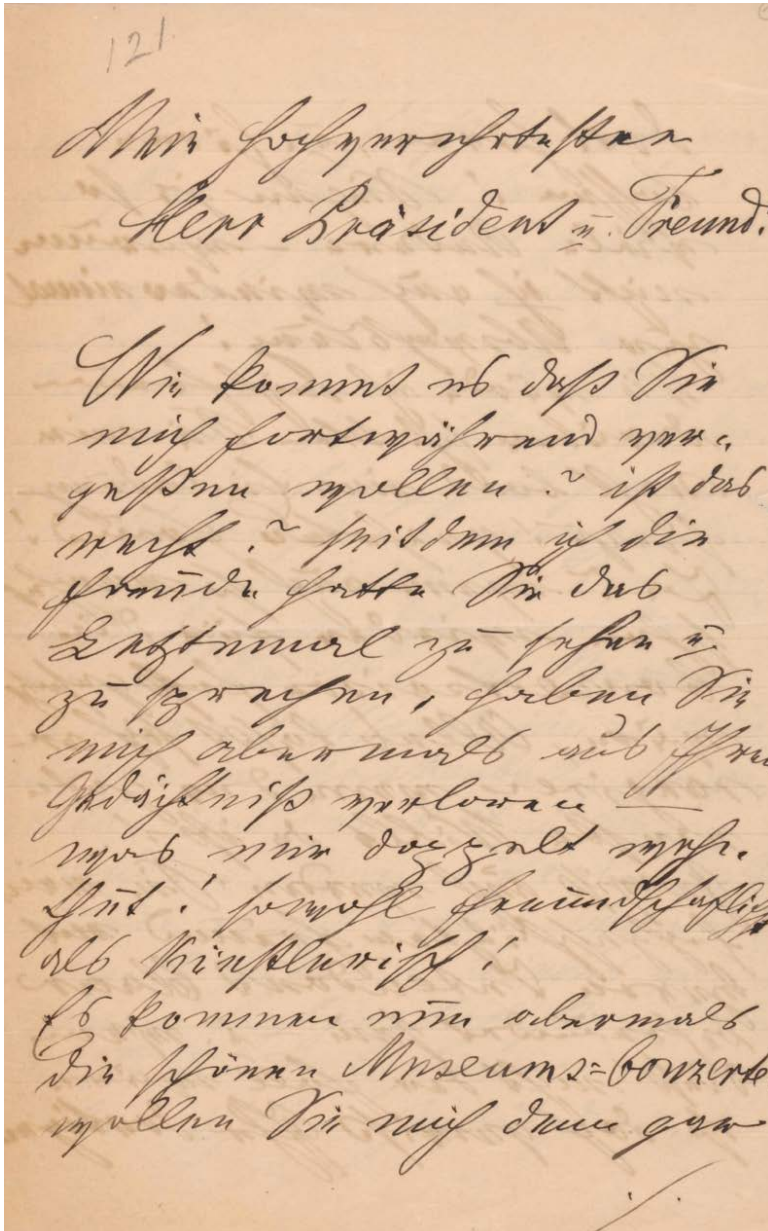 121.
Mein hochverehrtester
Herr Präsident u. Freund!
Wie kommt es daß Sie
mich fortwährend ver-
geßen wollen? ist das
recht? seitdem ich die
Freude hatte Sie das
Letztemal zu sehen u.
zu sprechen, haben Sie
mich abermals aus Ihrem
Gedächtniß verloren —
was mir doppelt wehe
thut! sowohl freundschaftlich
als künstlerisch!
Es kommen nun abermals
die schönen Museums=Conzerte
wollen Sie mich denn gar
./.